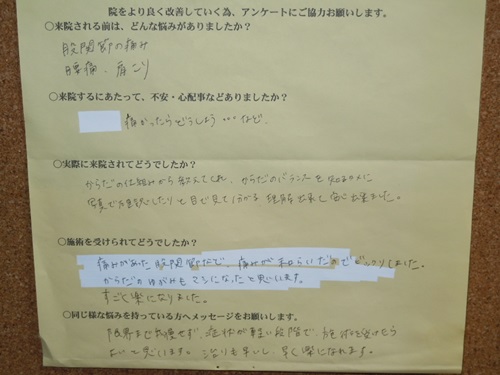 院をより良く改善していく為、アンケートにご協力お願いします。
○来院される前は、どんな悩みがありましたか?
股関節の痛み
腰痛、肩こり
○来院するにあたって、不安・心配事などありましたか?
痛かったらどうしよう…など。
○実際に来院されてどうでしたか?
からだの仕組みから教えてくれ、からだのバランスを知るために
写真で確認したりと目で見て分かる 理解出来て安心出来ました。
○施術を受けられてどうでしたか?
痛みがあった股関節などで、痛みが和らいだのでびっくりしました。
からだのゆがみもマシになったと思います。
すごく楽になりました。
○同じ様な悩みを持っている方へメッセージをお願いします。
限界まで我慢せず、症状が軽い段階で、施術を受けたら
よいと思います。治りも早いし、早く楽になれます。